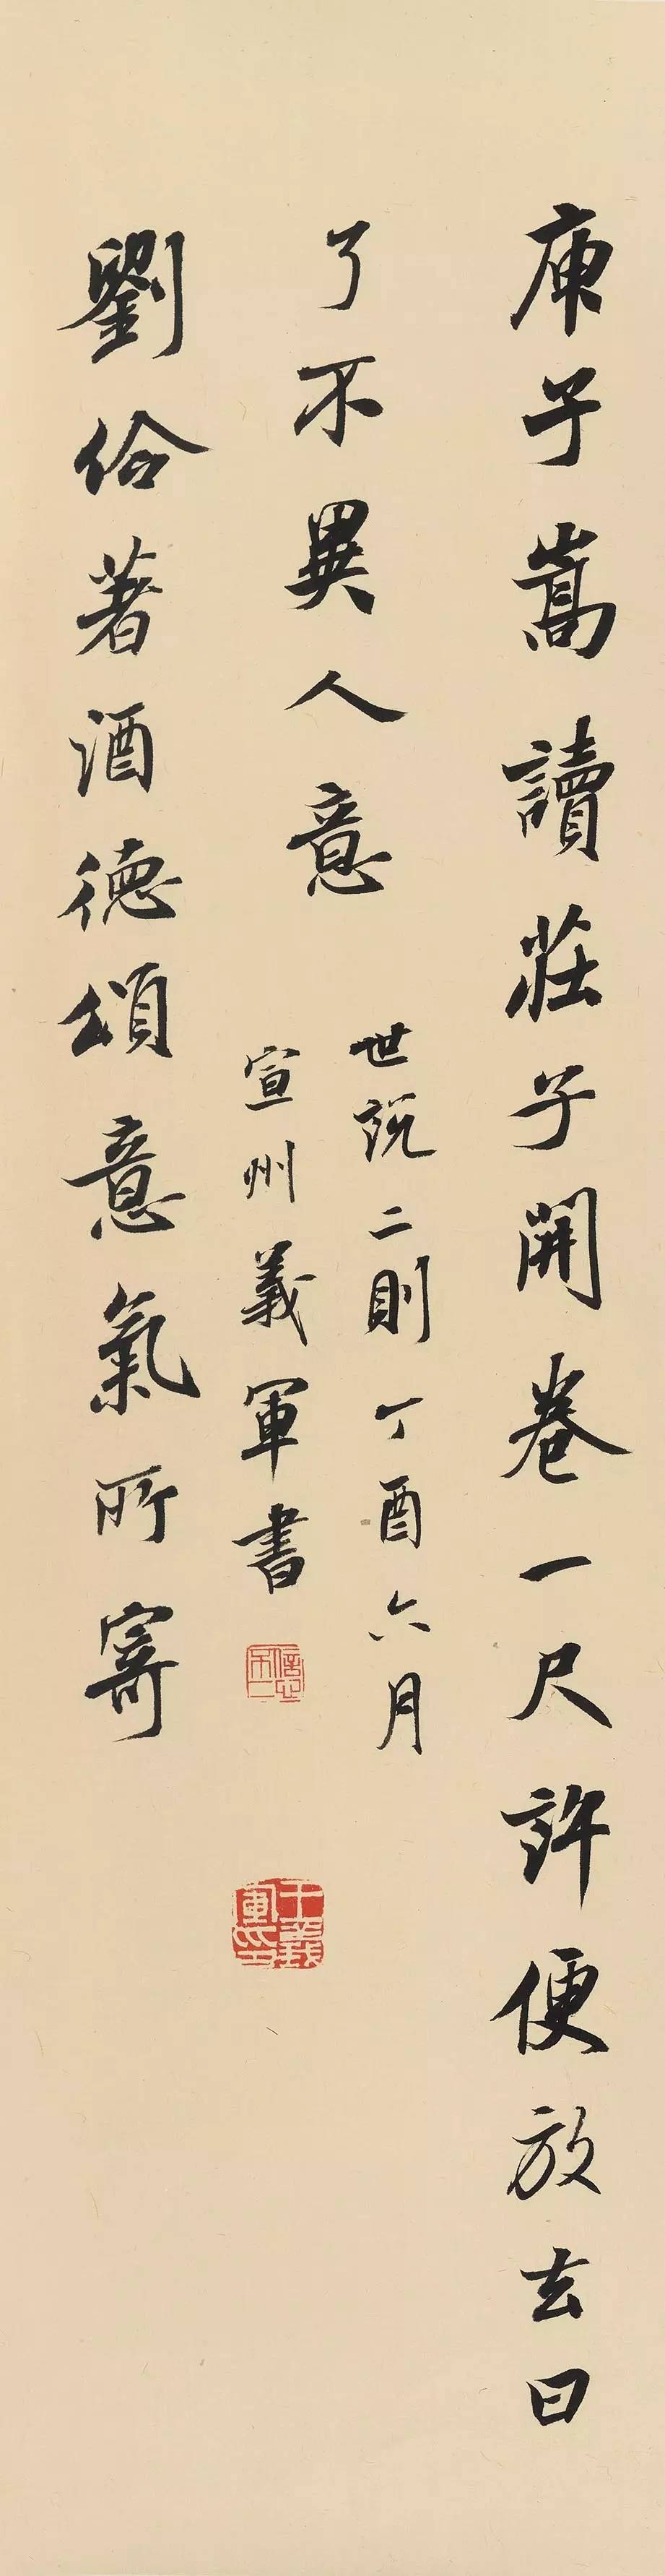 庾子嵩讀莊子開卷一尺許便放去曰
了不異人意
世說二則丁酉六月
宣州義軍書
王義軍印
劉伶著酒德頌意氣所寄